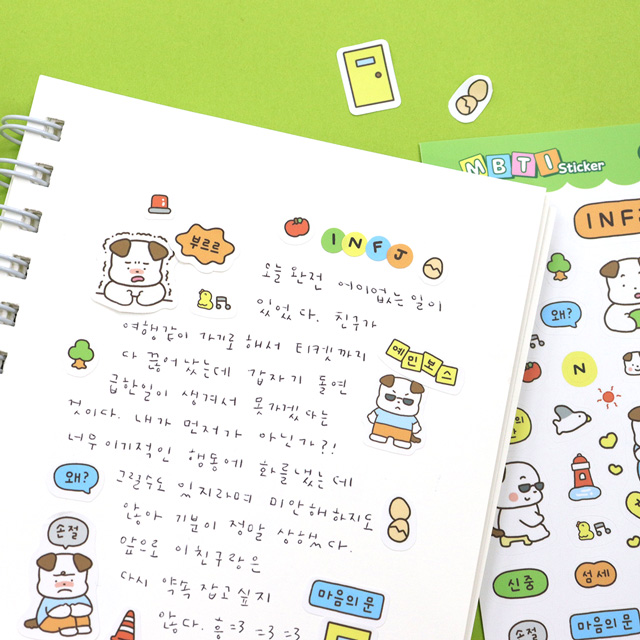 MBTI Sticker
INFJ
부르르
INFJ
오늘 완전 어이없는 일이
있었다. 친구가
여행같이 가기로 해서 티켓까지
다 끊어 놨는데 갑자기 돌연
예민보스
급한일이 생겨서 못가겠다는
것이다. 내가 먼저가 아닌가?!
너무 이기적인 행동에 화를 냈는데
왜?
그럴수도 있지라며 미안해하지도
않아 기분이 정말 상했다.
손절
앞으로 이 친구랑은
다시 약속 잡고 싶지
않다. 흥=3 =3 =3
마음의 문
왜?
N
신중
섬세
마음의 문